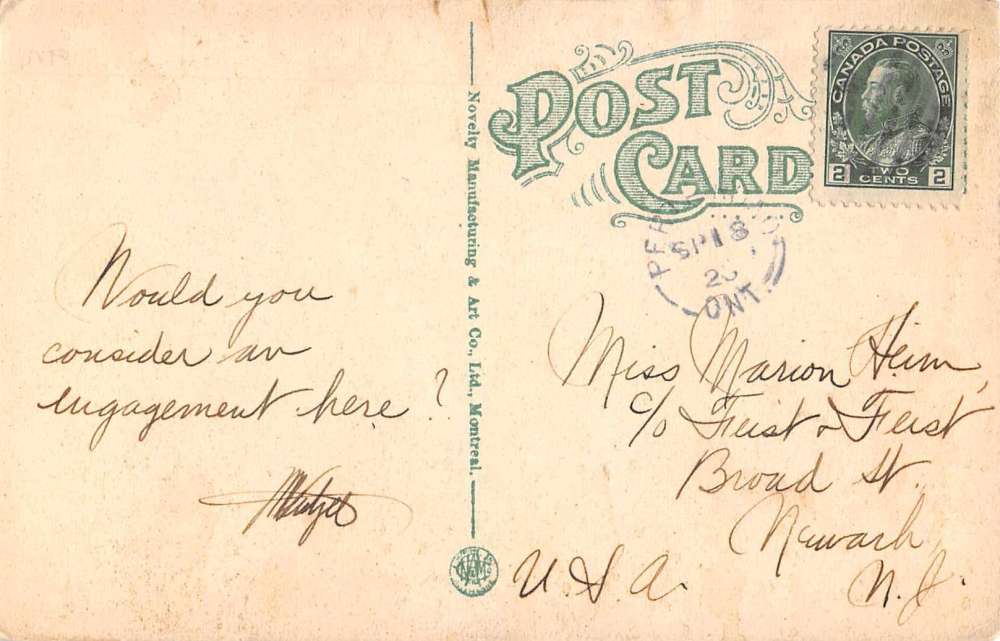 POST
CARD
CANADA POSTAGE
2 TWO CENTS 2
SP 18
ONT.
Novelty Manufacturing & Art Co., Ltd., Montreal.
Would you
consider an
engagement here?
Miss Marion Heim,
c/o Feist & Feist
Broad St.
Newark
N.J.
U.S.A.